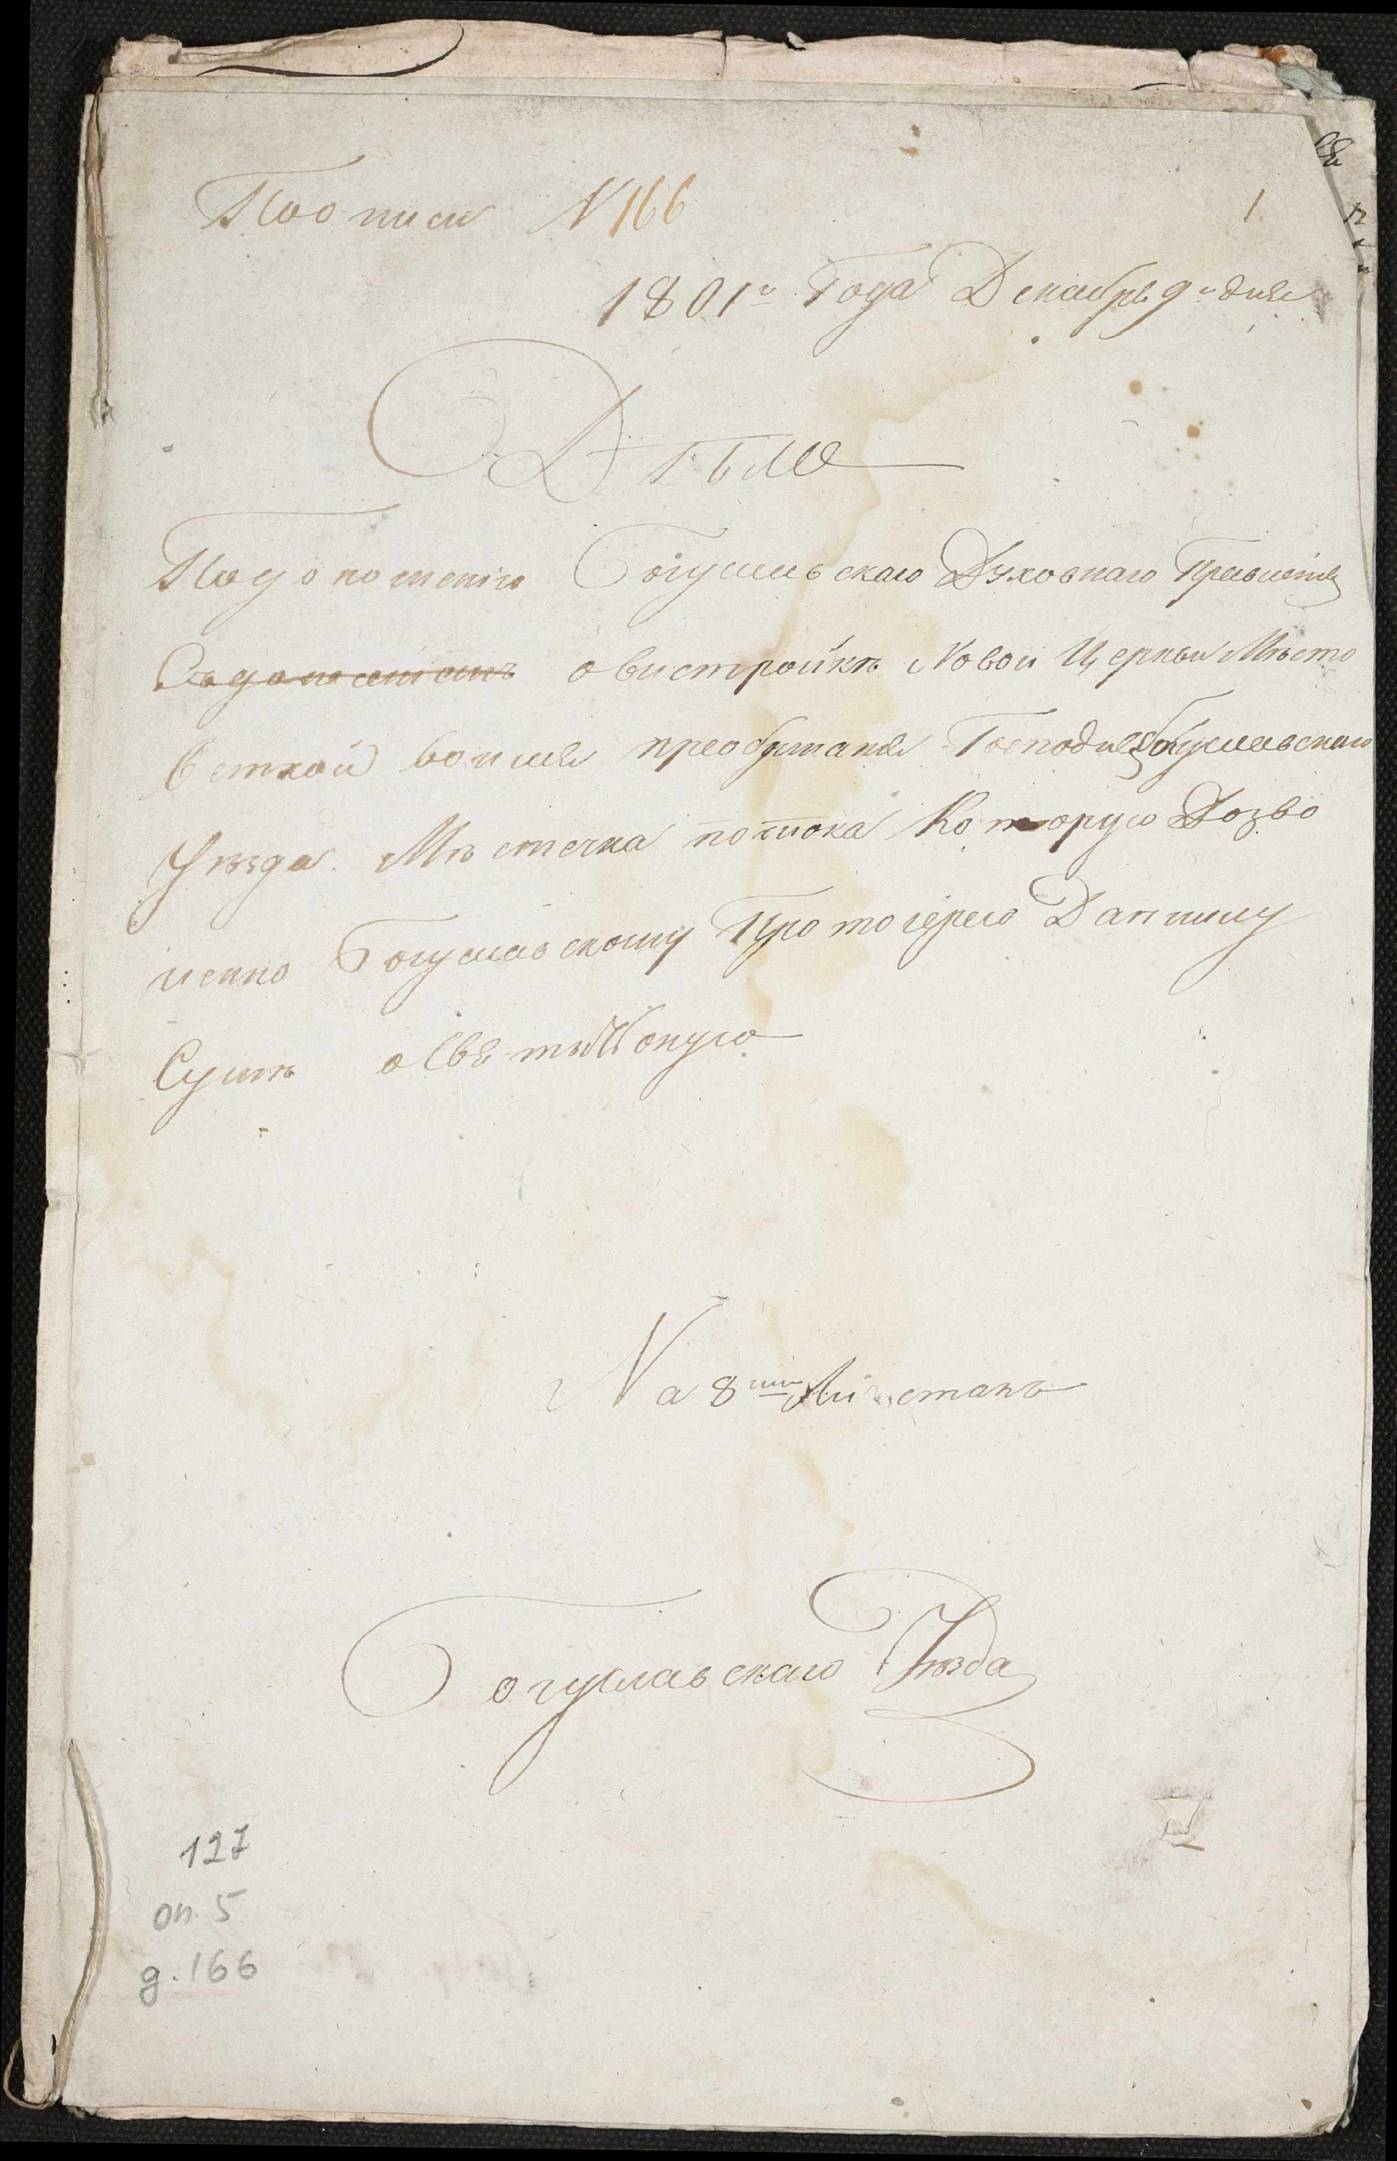 По описи № 166
1
1801го Года Декабря 9го дня
Дѣло
По доношению Богуславскаго Духовнаго Правления
о вистройки Новой Церкви Мѣсто
ветхой во имя преображения Господня Богуславскаго
Уезда Мѣстечка Которую Дозво
ленно Богуславскому Протоиерею Даниилу
На 8ми Листахъ
Богуславскаго Уезда
127
оп 5
д. 166